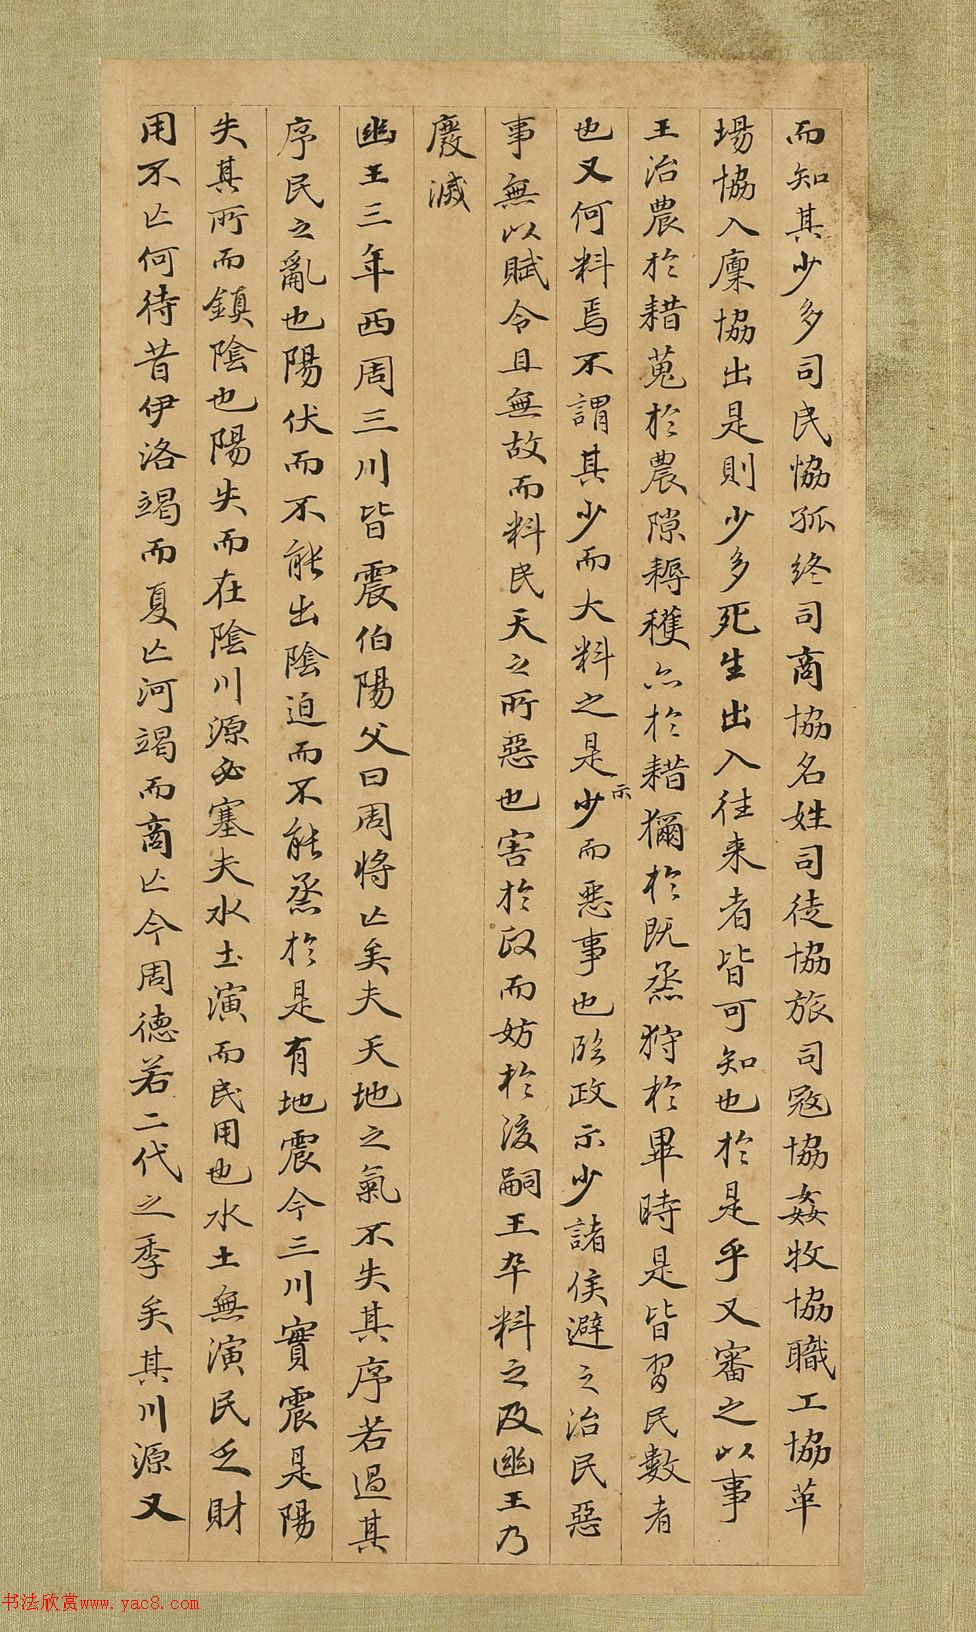 而知其少多司民協孤終司商協名姓司徒協旅司寇協姦牧協職工協革
場協入廩協出是則少多死生出入往来者皆可知也於是乎又審之以事
王治農於耤蒐於農隙耨穫亦於耤獮於既烝狩於畢時是皆習民數者
也又何料焉不謂其少而大料之是示少而惡事也臨政示少諸侯避之治民惡
事無以賦令且無故而料民天之所惡也害於政而妨於後嗣王卒料之及幽王乃
廢滅
幽王三年西周三川皆震伯陽父曰周將亡矣夫天地之氣不失其序若過其
序民之亂也陽伏而不能出陰迫而不能烝於是有地震今三川實震是陽
失其所而鎮陰也陽失而在陰川源必塞夫水土演而民用也水土無演民乏財
用不亡何待昔伊洛竭而夏亡河竭而商亡今周德若二代之季矣其川源又
书法欣赏www.yac8.com